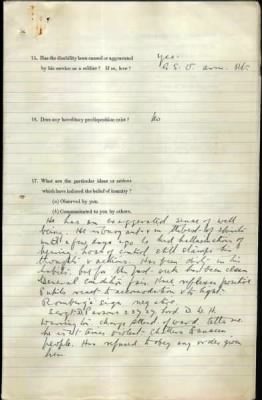 15. Has the disability been caused or aggravated
by his service as a soldier? If so, how?
yes.
G.S.O. arm. Rt.
16. Does any hereditary predisposition exist?
No
17. What are the particular ideas or actions
which have induced the belief of insanity?
(a) Observed by you.
(b) Communicated to you by others.
He has an exaggerated sense of well
being. He is buoyant & in the best of spirits
until a few days ago he had hallucinations of
hearing, noises control and stamps his
thoughts & actions. Has been dirty in his
habits, but for the past week has been clean
General condition fair. Knee reflexes
Pupils react to accommodation & to light
Romberg's sign negative.
Sergt D. Parsons D. D. H.
in charge of ward tells me
he is at times violent. Chatters to unseen
people. Has refused to obey any orders given
him.